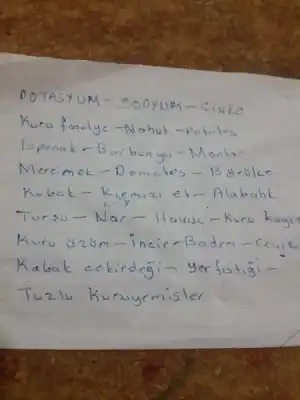 POTASYUM - SODYUM - ÇİNKO
Kuru fasulye - Nohut - Patates
Ispanak - Barbunya - Mantar
Mercimek - Domates - Börülce
Kabak - Kırmızı et - Alabalık
Turşu - Nar - Havuç - Kuru kayısı
Kuru üzüm - İncir - Badem - Ceviz
Kabak çekirdeği - Yer fıstığı -
Tuzlu Kuruyemişler